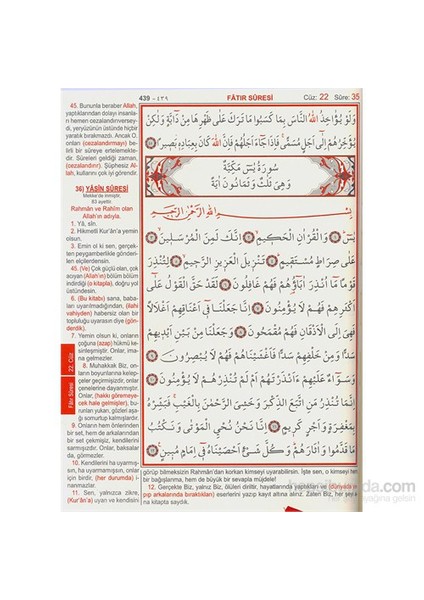 439 - ٤٣٩ FÂTIR SÛRESİ Cüz: 22 Sûre: 35
45. Bununla beraber Allah,
yaptıklarından dolayı insanla-
rı hemen cezalandırıverseydi,
yeryüzünün üstünde hiçbir
yaratık bırakmazdı. Ancak O,
onları (cezalandırmayı) be-
lirli bir süreye ertelemekte-
dir. Süreleri geldiği zaman,
(cezalandırır). Şüphesiz Al-
lah, kullarını çok iyi görendir.
36) YÂSÎN SÛRESİ
Mekke'de inmiştir.
83 ayettir.
Rahmân ve Rahîm olan
Allah'ın adıyla.
1. Yâ, sîn.
2. Hikmetli Kur'ân'a yemin
olsun.
3. Emin ol ki sen, gerçek-
ten peygamberlikle gönderi-
len elçilerdensin.
45. (Ve) Çok güçlü olan, çok
acıyan (Allah'ın) bölüm bölüm
indirdiği (o kitapla), doğru yol
üstündesin.
6. (Bu kitabı) sana, baba-
ları uyarılmadığından, (ilahi
vahiyden) habersiz olan bir
topluluğu uyarasın diye (gön-
derdik).
7. Yemin olsun ki, onların
çoğuna (azap) hükmü ke-
sinleşmiştir. Onlar, iman-
a gelmezler.
8. Muhakkak Biz, on-
ların boyunlarına kelep-
çeler geçirmişizdir, onlar
çenelerine dayanmıştır.
Onlar, (hakkı göremeye-
cek hale gelmişler), bu-
runları yukarı, gözleri aşa-
ğı somurtup kalmışlardır.
9. Onların hem önlerinden
bir set, hem de arkalarından
bir set çekmişiz, kendilerini
sarmışızdır. Onlar, baksalar
da, görmezler.
10. Kendilerini ha uyarmış-
sın, ha uyarmamışsın, onlar
için birdir, (her durumda) i-
nanmazlar.
11. Sen, yalnızca zikre,
(Kur'ân'a) uyan ve kendisini
22. Cüz
Fâtır Sûresi
وَلَوْ يُؤَاخِذُ اللهُ النَّاسَ بِمَا كَسَبُوا مَا تَرَكَ عَلَى ظَهْرِهَا مِنْ دَابَّةٍ وَلَكِنْ
يُؤَخِّرُهُمْ إِلَى أَجَلٍ مُسَمًّى فَإِذَا جَاءَ أَجَلُهُمْ فَإِنَّ اللهَ كَانَ بِعِبَادِهِ بَصِيرًا
سُورَةُ يٰسٓ مَكِّيَّةٌ
وَهِيَ ثَلٰثٌ وَثَمَانُونَ اٰيَةً
بِسْمِ اللهِ الرَّحْمٰنِ الرَّحِيمِ
يٰسٓ وَالْقُرْاٰنِ الْحَكِيمِ إِنَّكَ لَمِنَ الْمُرْسَلِينَ
عَلَى صِرَاطٍ مُسْتَقِيمٍ تَنْزِيلَ الْعَزِيزِ الرَّحِيمِ لِتُنْذِرَ
قَوْمًا مَا أُنْذِرَ اٰبَاؤُهُمْ فَهُمْ غَافِلُونَ لَقَدْ حَقَّ الْقَوْلُ عَلَى
أَكْثَرِهِمْ فَهُمْ لَا يُؤْمِنُونَ إِنَّا جَعَلْنَا فِي أَعْنَاقِهِمْ أَغْلَالًا
فَهِيَ إِلَى الْأَذْقَانِ فَهُمْ مُقْمَحُونَ وَجَعَلْنَا مِنْ بَيْنِ أَيْدِيهِمْ
سَدًّا وَمِنْ خَلْفِهِمْ سَدًّا فَأَغْشَيْنَاهُمْ فَهُمْ لَا يُبْصِرُونَ
وَسَوَاءٌ عَلَيْهِمْ ءَأَنْذَرْتَهُمْ أَمْ لَمْ تُنْذِرْهُمْ لَا يُؤْمِنُونَ
إِنَّمَا تُنْذِرُ مَنِ اتَّبَعَ الذِّكْرَ وَخَشِيَ الرَّحْمٰنَ بِالْغَيْبِ فَبَشِّرْهُ
بِمَغْفِرَةٍ وَأَجْرٍ كَرِيمٍ إِنَّا نَحْنُ نُحْيِ الْمَوْتٰى وَنَكْتُبُ
مَا قَدَّمُوا وَاٰثَارَهُمْ وَكُلَّ شَيْءٍ أَحْصَيْنَاهُ فِي إِمَامٍ مُبِينٍ
görüp bilmeksizin Rahmân'dan korkan kimseyi uyarabilirsin. İşte sen, o kimseyi hem
bir bağışlanma, hem de büyük bir sevapla müjdele!
12. Gerçekte Biz, yalnız Biz, ölüleri diriltir, hayatlarında yaptıkları ve (dünyada ya-
pıp arkalarında bıraktıkları) eserlerini yazıp kayıt altına alırız. Zaten Biz, her şeyi a-
na kitapta saydık.